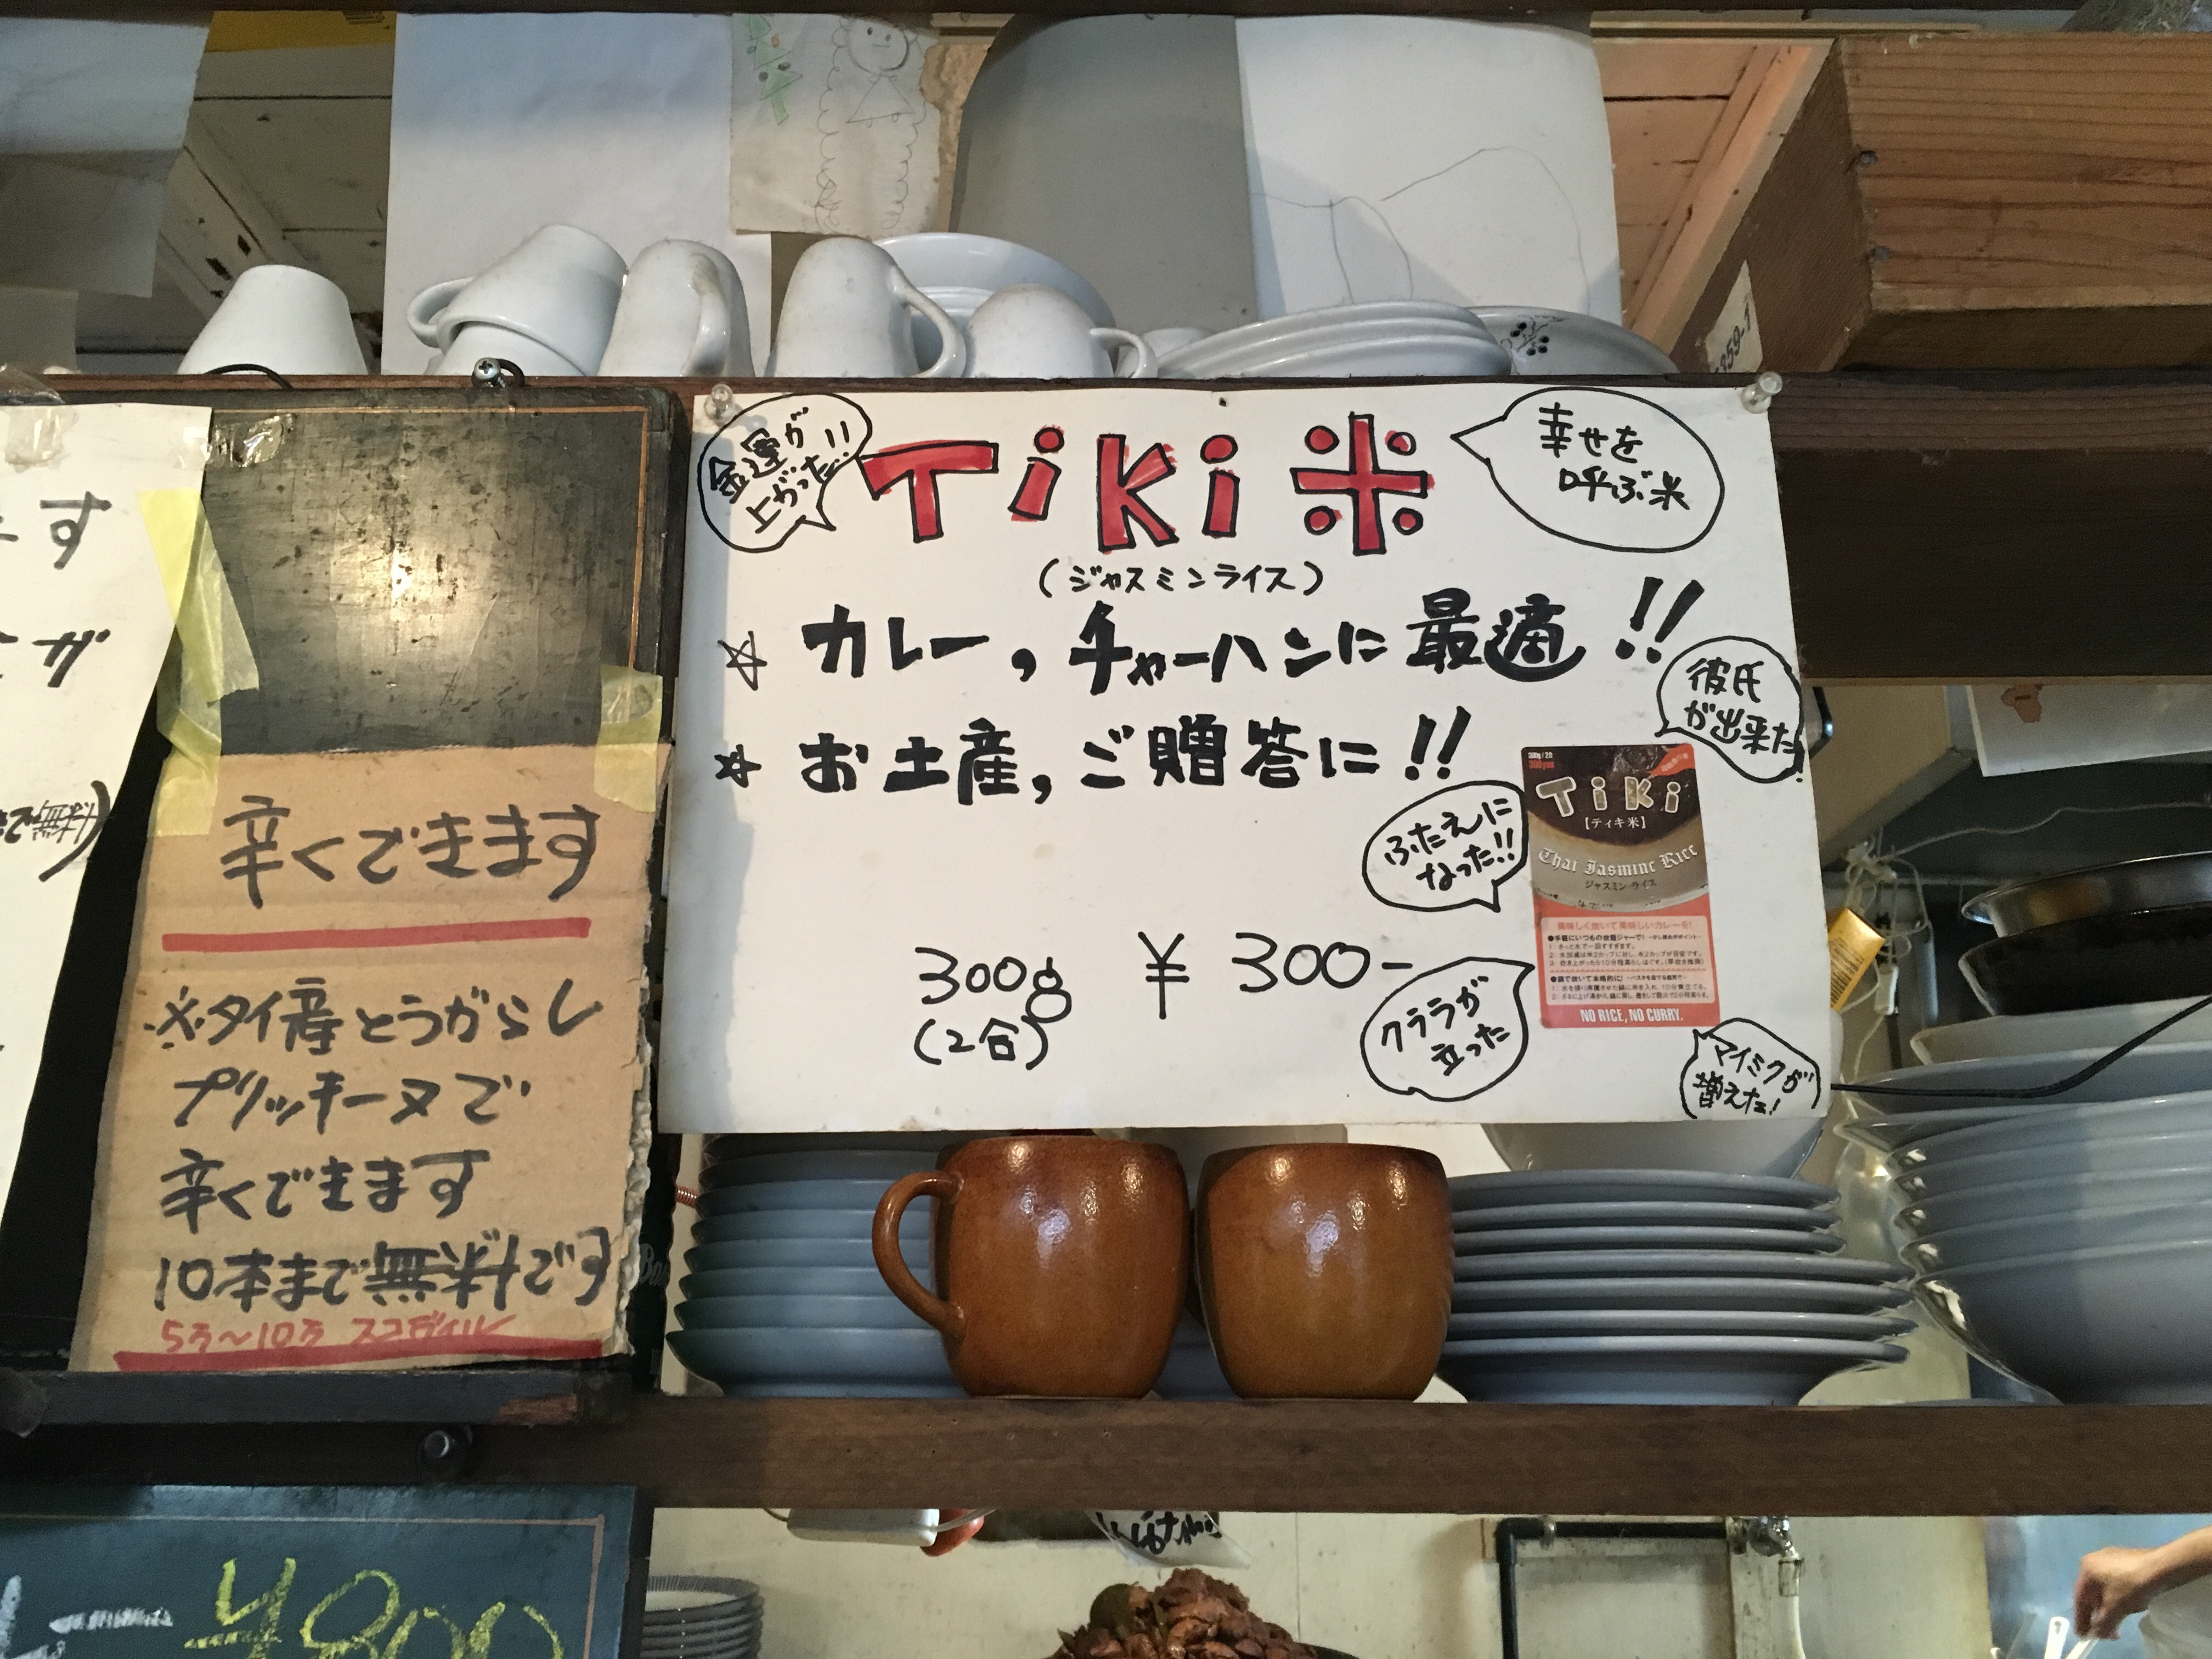 す
が
で無料
辛くできます
※タイ産とうがらし
プリッキーヌで
辛くできます
10本まで無料です
¥800
金運が
上がった!!
Tiki 米
幸せを
呼ぶ米
(ジャスミンライス)
☆ カレー,チャーハンに最適!!
彼氏
が出来た!
☆ お土産,ご贈答に!!
ふたえに
なった!!
300g ¥300-
(2合)
クララが
立った
マイミクが
増えた!
Tiki
【ティキ米】
Thai Jasmine Rice
ジャスミン ライス
美味しく炊いて美味しいカレーを!
NO RICE, NO CURRY.
859-1